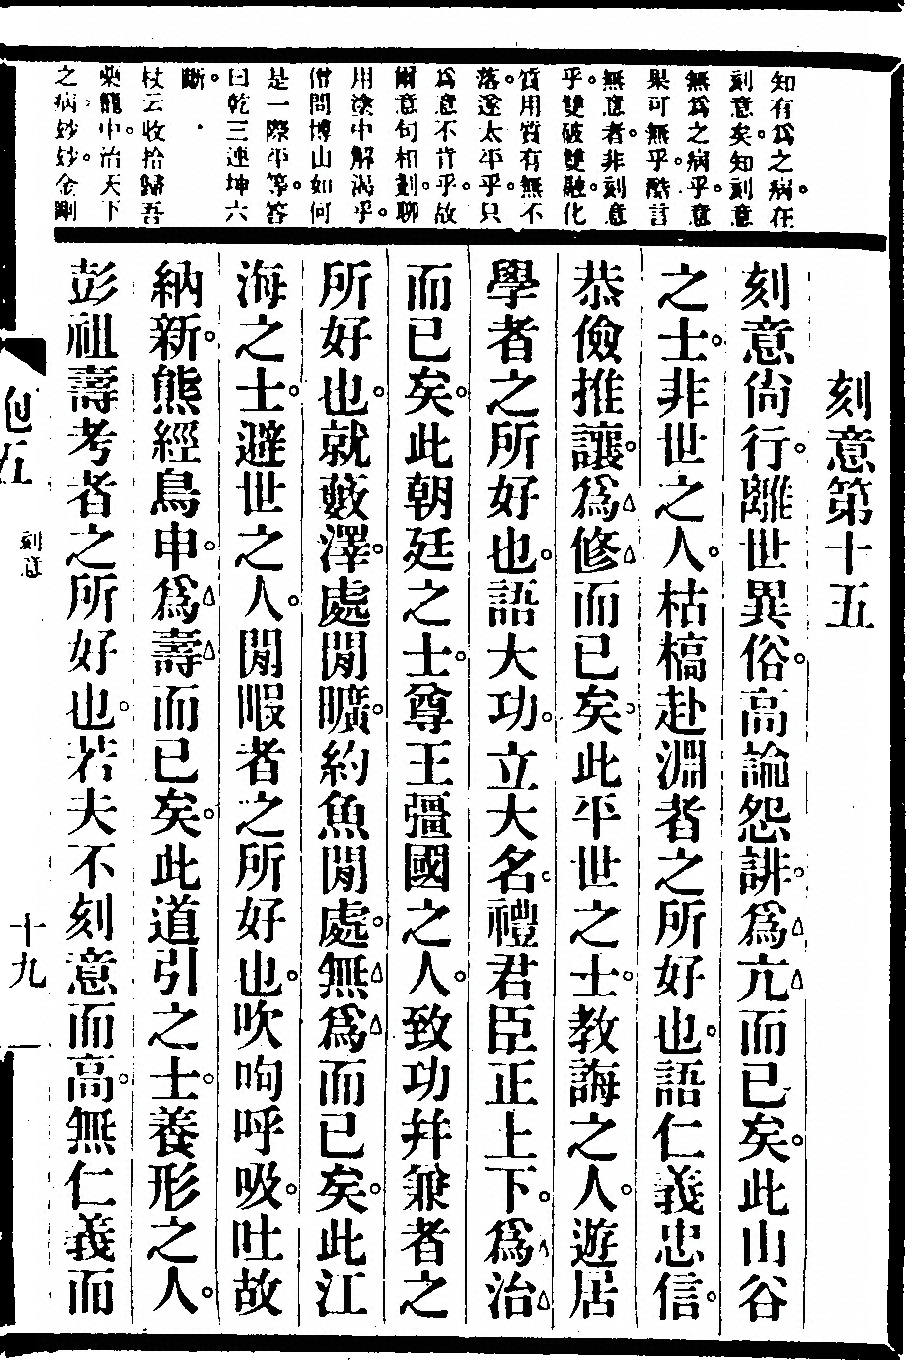 知有爲之病在
刻意矣知刻意
無爲之病乎意
果可無乎酷言
無意者非刻意
乎雙破雙融化
質用質有無不
落遂太平乎只
爲意不肯乎故
爾意句相劃聊
用塗中解渴乎
僧問博山如何
是一際平等答
曰乾三連坤六
斷
杖云收拾歸吾
藥籠中治天下
之病妙妙金剛
刻意第十五
刻意尙行離世異俗高論怨誹爲亢而已矣此山谷
之士非世之人枯槁赴淵者之所好也語仁義忠信
恭儉推讓爲修而已矣此平世之士教誨之人遊居
學者之所好也語大功立大名禮君臣正上下爲治
而已矣此朝廷之士尊王彊國之人致功幷兼者之
所好也就藪澤處閒曠約魚閒處無爲而已矣此江
海之士避世之人閒暇者之所好也吹呴呼吸吐故
納新熊經鳥申爲壽而已矣此道引之士養形之人
彭祖壽考者之所好也若夫不刻意而高無仁義而
刻意
十九